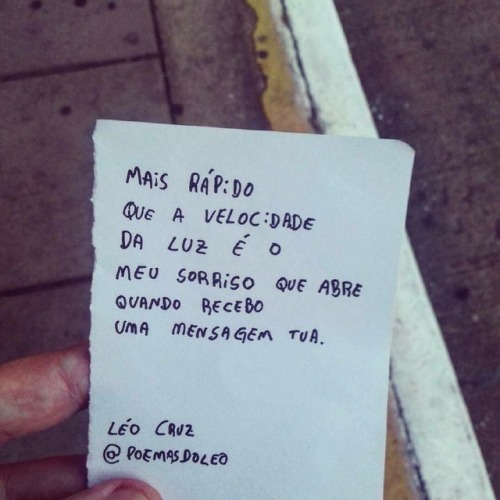 MAIS RÁPIDO
QUE A VELOCIDADE
DA LUZ É O
MEU SORRISO QUE ABRE
QUANDO RECEBO
UMA MENSAGEM TUA.
LÉO CRUZ
@POEMASDOLEO